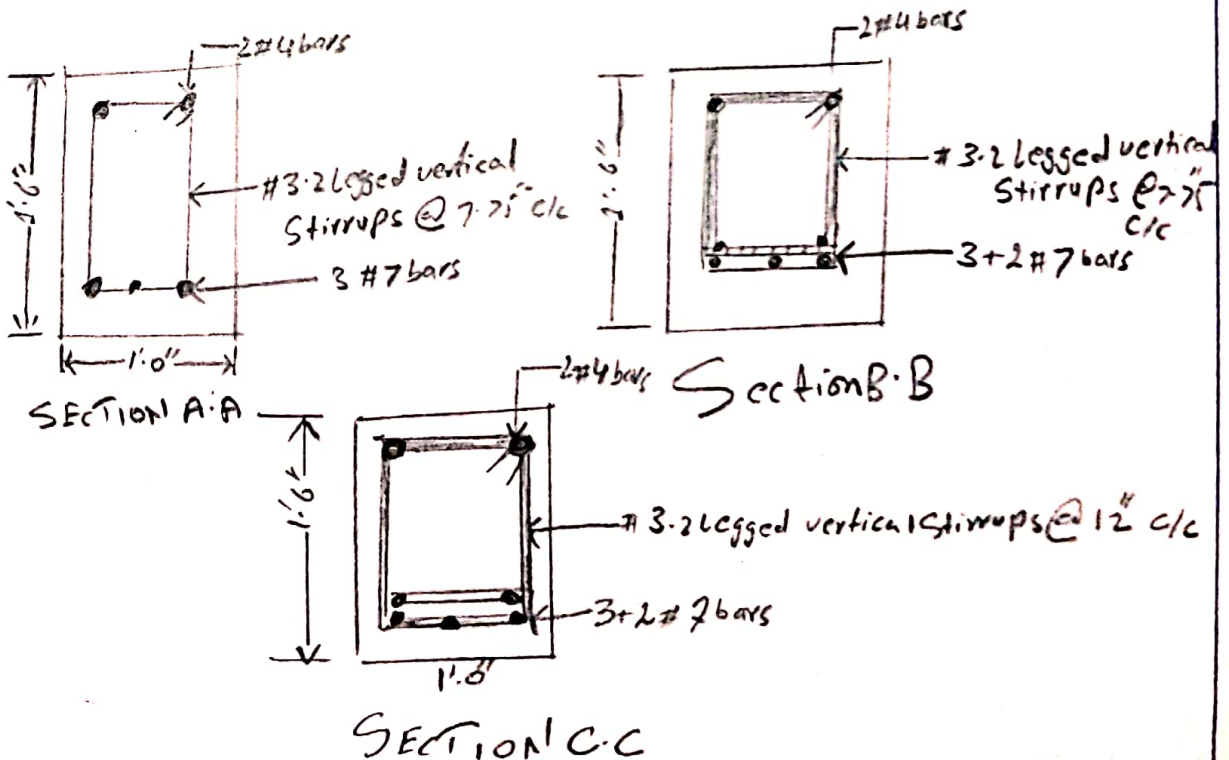 2#4 bars
#3-2 Legged vertical
Stirrups @ 7.75" c/c
3 #7 bars
1'.0"
SECTION A.A
2#4 bars
#3.2 Legged vertical
Stirrups @7.75"
c/c
3+2 #7 bars
Section B.B
2#4 bars
1'.6"
#3.2 Legged vertical Stirrups @ 12" c/c
3+2 #7 bars
1'.0"
SECTION C.C